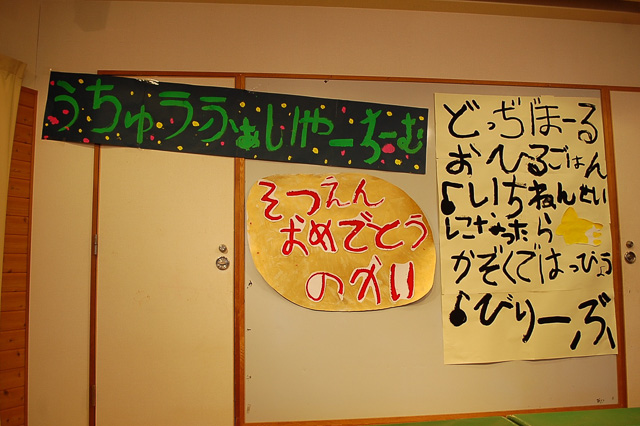 うちゅうふぁいやーちーむ
そつえん
おめでとう
のかい
どっぢぼーる
おひるごはん
♪いちねんせい
になったら
かぞくではっぴょう
♪びりーぶ